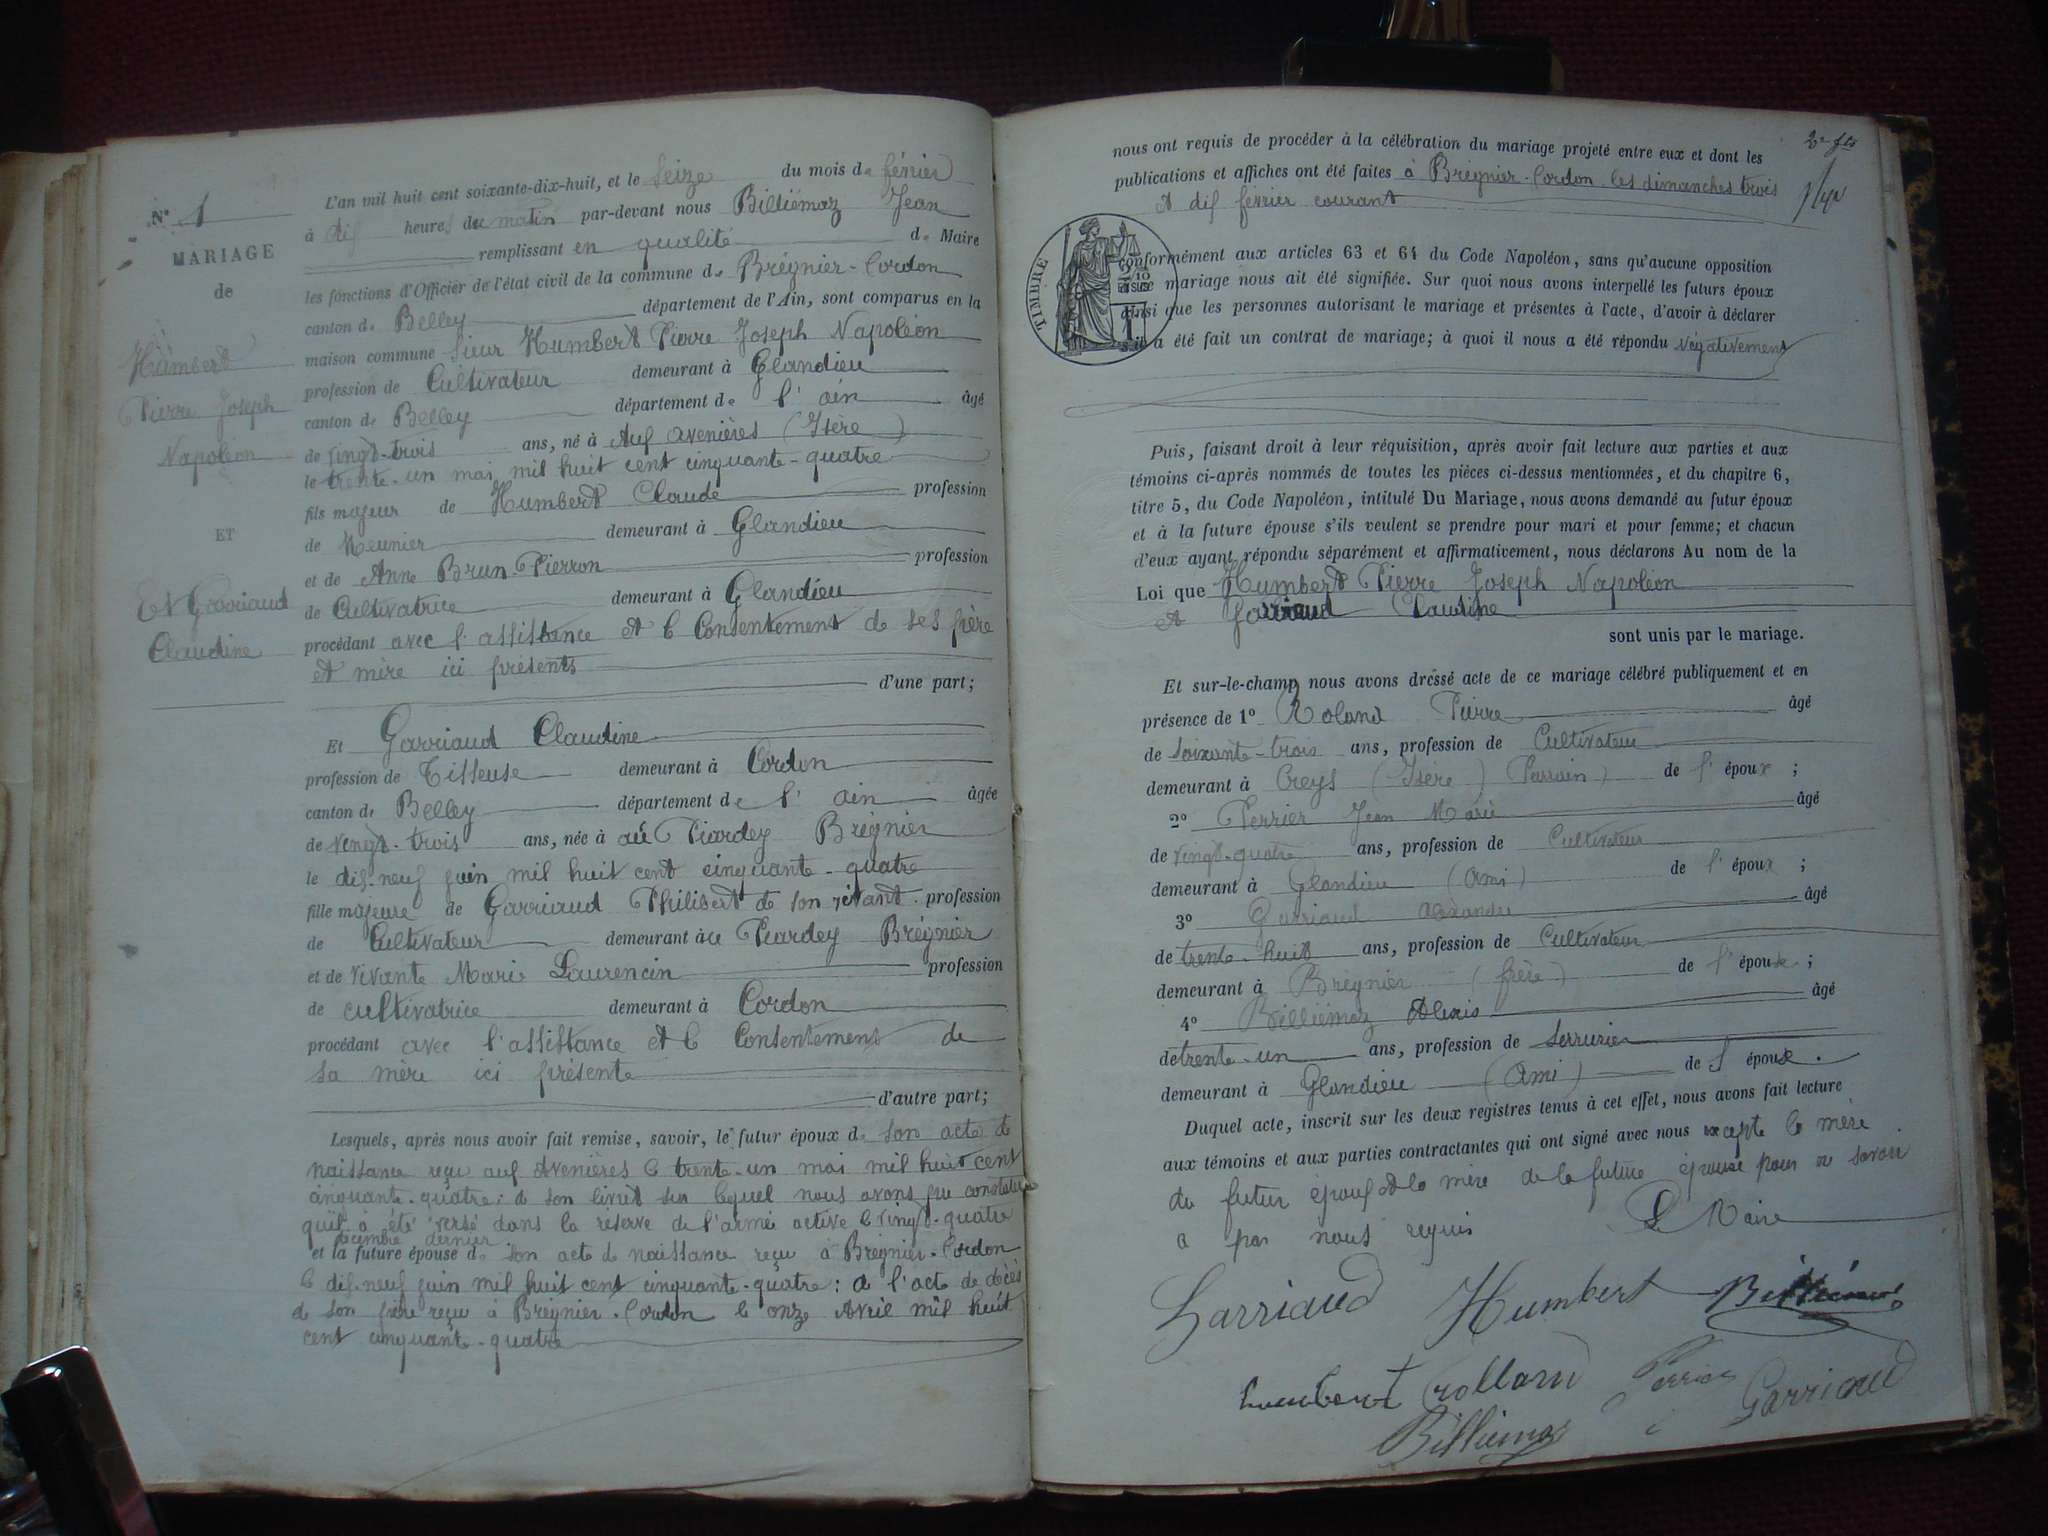 N° 1
MARIAGE
de
Humbert
Pierre Joseph
Napoléon
ET
Et Garriaud
Claudine
L'an mil huit cent soixante-dix-huit, et le seize du mois de février
à dix heures du matin par-devant nous Billiémaz Jean
remplissant en qualité de Maire
les fonctions d'Officier de l'état civil de la commune de Brégnier-Cordon
canton de Belley département de l'Ain, sont comparus en la
maison commune sieur Humbert Pierre Joseph Napoléon
profession de Cultivateur demeurant à Glandieu
canton de Belley département de l'ain âgé
de vingt-trois ans, né à Aux avenières (Isère)
le trente-un mai mil huit cent cinquante-quatre
fils majeur de Humbert Claude profession
de Meunier demeurant à Glandieu
et de Anne Brun-Pierron profession
de Cultivatrice demeurant à Glandieu
procédant avec l'assistance et le Consentement de ses père
et mère ici présents
d'une part;
Et Garriaud Claudine
profession de Tisseuse demeurant à Cordon
canton de Belley département de l'ain âgée
de vingt-trois ans, née à au Piardey Brégnier
le dix-neuf juin mil huit cent cinquante-quatre
fille majeure de Garriaud Philibert de son vivant profession
de Cultivateur demeurant à au Piardey Brégnier
et de vivante Marie Laurencin profession
de cultivatrice demeurant à Cordon
procédant avec l'assistance et le Consentement de
sa mère ici présente
d'autre part;
Lesquels, après nous avoir fait remise, savoir, le futur époux de son acte de
naissance reçu aux Avenières le trente-un mai mil huit cent
cinquante-quatre: de son livret sur lequel nous avons pu constater
qu'il a été versé dans la réserve de l'armé active le vingt-quatre
dernier
et la future épouse de son acte de naissance reçu à Brégnier-Cordon
le dix-neuf juin mil huit cent cinquante-quatre: de l'acte de décès
de son père reçu à Brégnier-Cordon le onze Avril mil huit
cent cinquante-quatre
nous ont requis de procéder à la célébration du mariage projeté entre eux et dont les
publications et affiches ont été faites à Brégnier-Cordon les dimanches trois
et dix février courant
TIMBRE
conformément aux articles 63 et 64 du Code Napoléon, sans qu'aucune opposition
mariage nous ait été signifiée. Sur quoi nous avons interpellé les futurs époux
ainsi que les personnes autorisant le mariage et présentes à l'acte, d'avoir à déclarer
s'il a été fait un contrat de mariage; à quoi il nous a été répondu négativement
Puis, faisant droit à leur réquisition, après avoir fait lecture aux parties et aux
témoins ci-après nommés de toutes les pièces ci-dessus mentionnées, et du chapitre 6,
titre 5, du Code Napoléon, intitulé Du Mariage, nous avons demandé au futur époux
et à la future épouse s'ils veulent se prendre pour mari et pour femme; et chacun
d'eux ayant répondu séparément et affirmativement, nous déclarons Au nom de la
Loi que Humbert Pierre Joseph Napoléon
et Garriaud Claudine
sont unis par le mariage.
Et sur-le-champ nous avons dressé acte de ce mariage célébré publiquement et en
présence de 1° Roland Pierre âgé
de soixante-trois ans, profession de Cultivateur
demeurant à Creys (Isère) Parrain de l'époux;
2° Perrier Jean Marie âgé
de vingt-quatre ans, profession de Cultivateur
demeurant à Glandieu (ami) de l'époux;
3° Garriaud Alexandre âgé
de trente-huit ans, profession de Cultivateur
demeurant à Brégnier (frère) de l'épouse;
4° Billiémaz Alexis âgé
de trente-un ans, profession de serrurier
demeurant à Glandieu (ami) de l'épouse.
Duquel acte, inscrit sur les deux registres tenus à cet effet, nous avons fait lecture
aux témoins et aux parties contractantes qui ont signé avec nous excepté la mère
du futur époux et la mère de la future épouse pour ne savoir
a par nous requis Le Maire
Garriaud Humbert Billiémaz
humbert Rolland Perrier Garriaud
Billiemaz